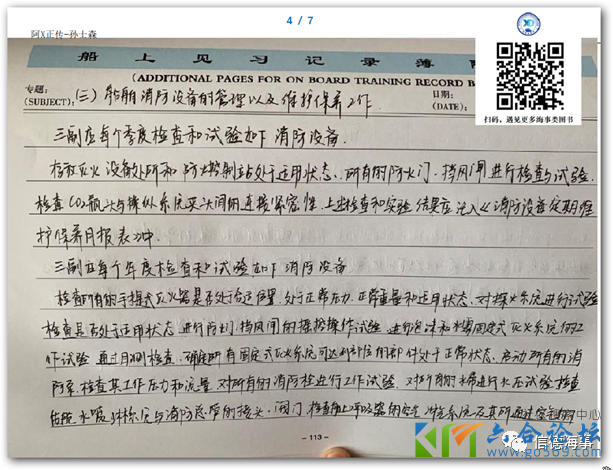 阿X正传-孙士森
4 / 7
船上见习记录簿附
(ADDITIONAL PAGES FOR ON BOARD TRAINING RECORD B
专题:
(SUBJECT): (三) 船舶消防设备的管理以及维护保养工作.
日期:
(DATE):
扫码,遇见更多海事类图书
三副应每个季度检查和试验如下消防设备.
存放灭火设备处所和防火控制站处于适用状态、所有的防火门、挡风闸进行检查与试验.
检查CO2瓶头与操纵系统夹头间的连接紧密性.上述检查和实验结果应记入《消防设备定期维
护保养月报表》中.
三副应每个年度检查和试验如下消防设备
检查所有的手提式灭火器是否处于 位置、处于正常压力、正常重量和适用状态、对探火系统进行试验
检查是否处于适用状态 进行防火门、挡风闸的操控操作试验 进行泡沫和水雾固定式灭火系统的工
作试验 通过目测检查、确定所有固定式灭火系统可达到部位的部件处于正常状态、启动所有的消
防泵、检查其工作压力和流量 对所有的消防栓进行工作试验、对所有的水带进行水压试验 检查
水喷淋系统与消防总管的接头、阀门
- 113 -
六合论坛
www.go569.com
信德海事